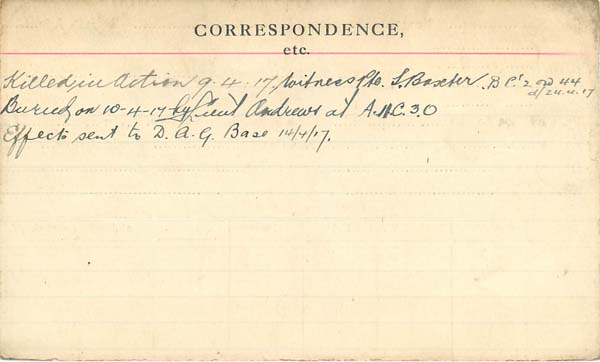 CORRESPONDENCE,
etc.
Killed in Action 9.4.17, Witness Pte. S. Baxter. B P! 2 OD 44
d/24.4.17
Buried on 10-4-17 by Lieut Andrews at A.11.C.3.0
Effects sent to D.A.G. Base 14/4/17.